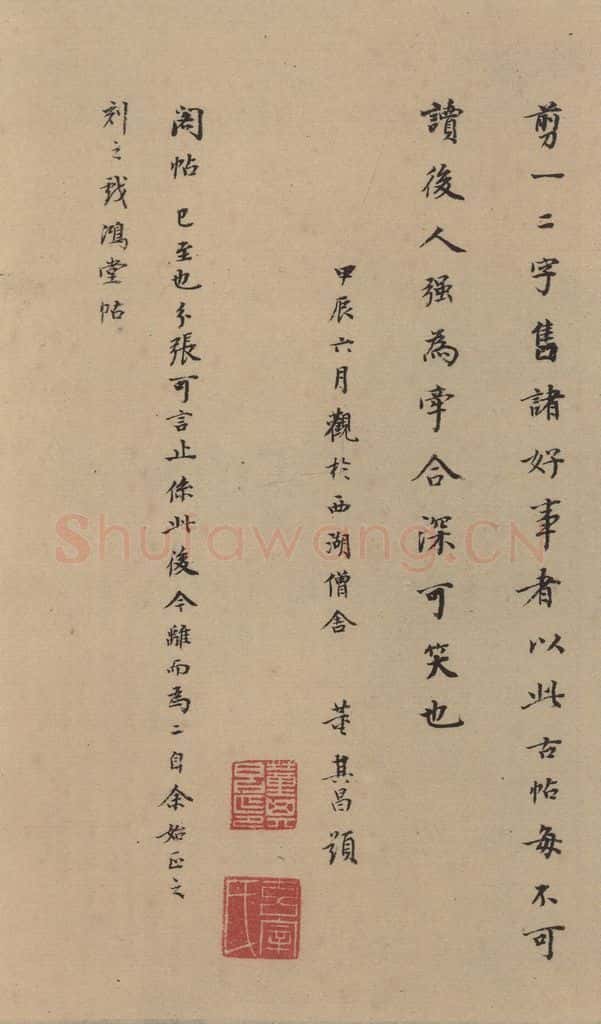 剪一二字售諸好事者以此古帖每不可
讀後人强為牽合深可笑也
甲辰六月觀於西湖僧舍 董其昌題
閣帖已至也分張可言止係此後今離而為二自余始正之
刻之戲鴻堂帖
董其昌印
Shufawang.CN